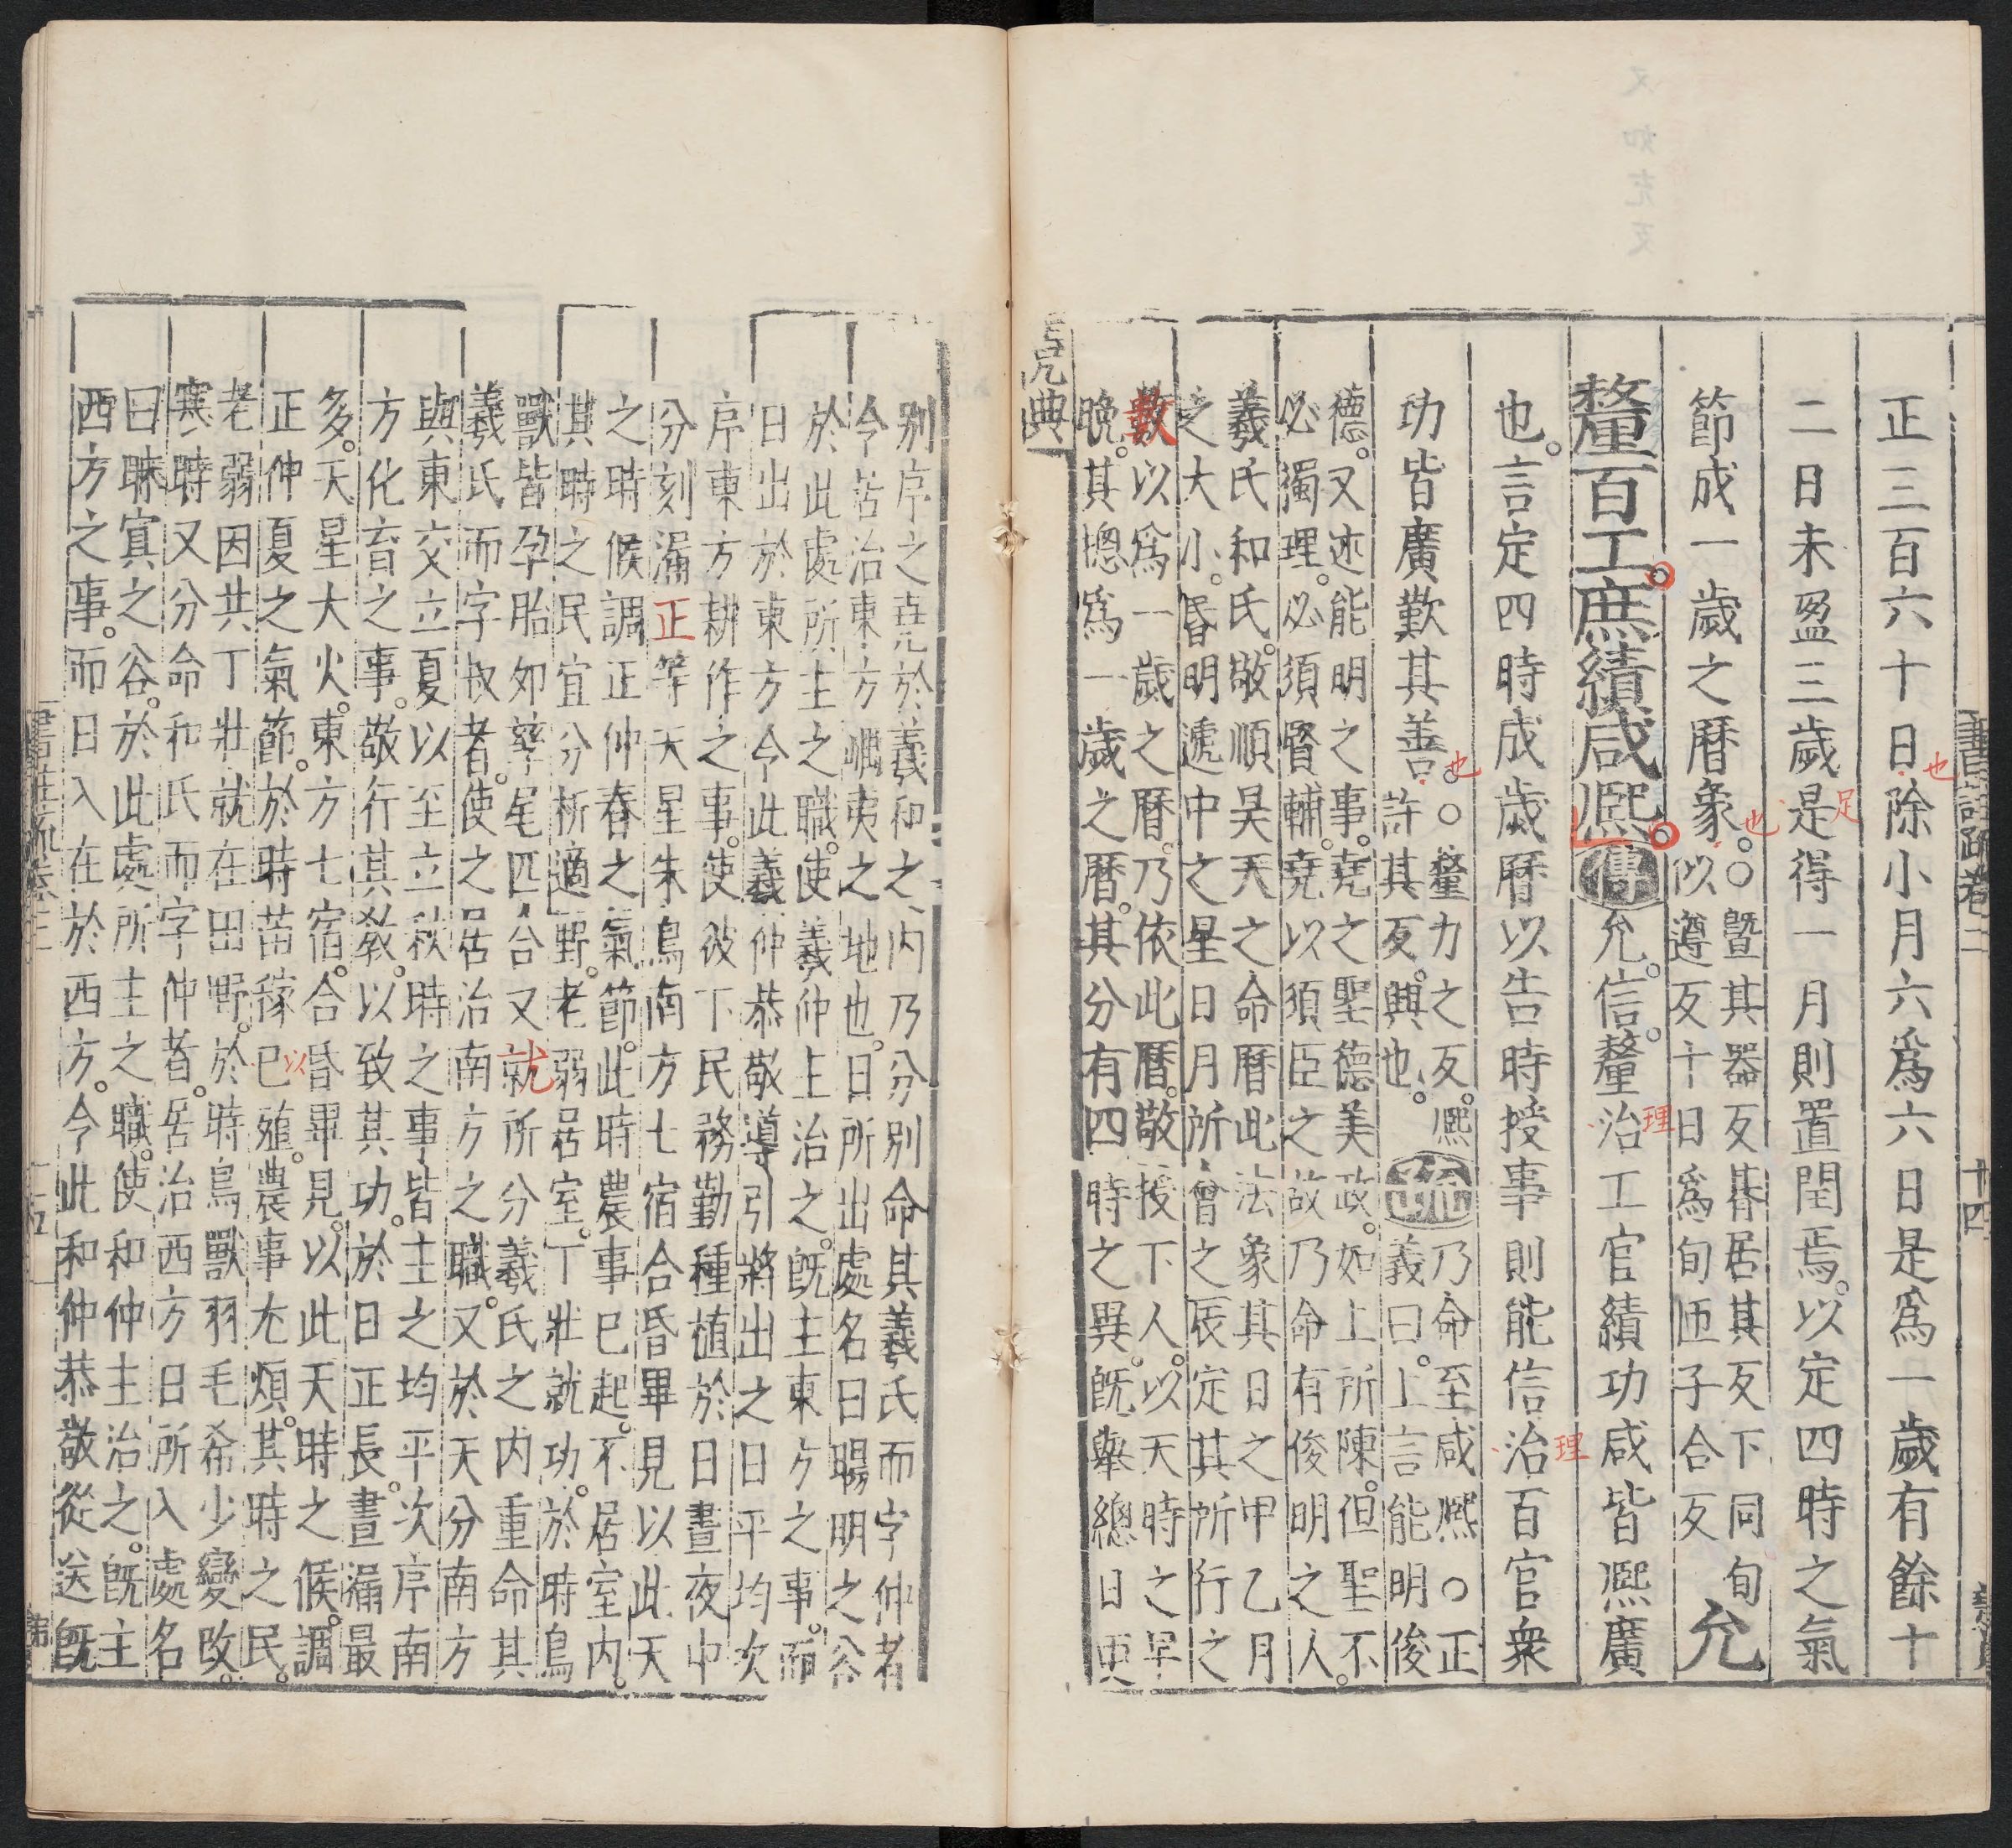 書註疏卷二
十四
正三百六十日除小月六爲六日是爲一歲有餘十
也
二日未盈三歲是得一月則置閏焉。以定四時之氣
足
節成一歲之曆象。○曁其器反朞居其反下同旬
似遵反十日爲旬匝子合反
允
也
釐百工。庶績咸熙。傳允。信。釐治工官績功咸皆熙廣
理
也。言定四時成歲曆以告時授事則能信治百官衆
理
功皆廣歎其善。○釐力之反。熙
許其反。興也。
也
疏乃命至咸熙○正
義曰。上言能明俊
德。又述能明之事。堯之聖德美政。如上所陳。但聖不
必獨理。必須賢輔。堯以須臣之故乃命有俊明之人。
羲氏和氏。敬順昊天之命曆此法象其日之甲乙月
之大小。昏明遞中之星日月所會之辰定其所行之
數以爲一歲之曆。乃依此曆。敬授下人。以天時之早
晚。其摠爲一歲之曆。其分有四時之異。旣舉總曰更
堯典
別序之堯於羲和之內乃分別命其羲氏而字仲者
令居治東方嵎夷之地也。日所出處名曰暘明之谷
於此處所主之職。使羲仲主治之。旣主東方之事。而
日出於東方今此羲仲恭敬導引將出之日平均次
序東方耕作之事。使彼下民務勤種植於日晝夜中
分刻漏正等天星朱鳥南方七宿合昏畢見以此天
之時候調正仲春之氣節。此時農事已起。不居室內。
其時之民宜分析適野。老弱居室。丁壯就功。於時鳥
獸皆孕胎卵孳尾匹合又就所分羲氏之內重命其
羲氏而字叔者。使之居治南方之職。又於天分南方
與東交立夏以至立秋時之事皆主之均平次序南
方化育之事。敬行其敎。以致其功。於日正長。晝漏最
多。天星大火。東方七宿。合昏畢見。以此天時之候。調
正仲夏之氣節。於時苗稼已殖。農事尤煩。其時之民。
以
老弱因共丁壯就在田野。於時鳥獸羽毛希少變改。
寒時又分命和氏而字仲者。居治西方日所入處名
曰昧冥之谷。於此處所主之職。使和仲主治之。旣主
西方之事。而日入在於西方。今此和仲恭敬從送旣